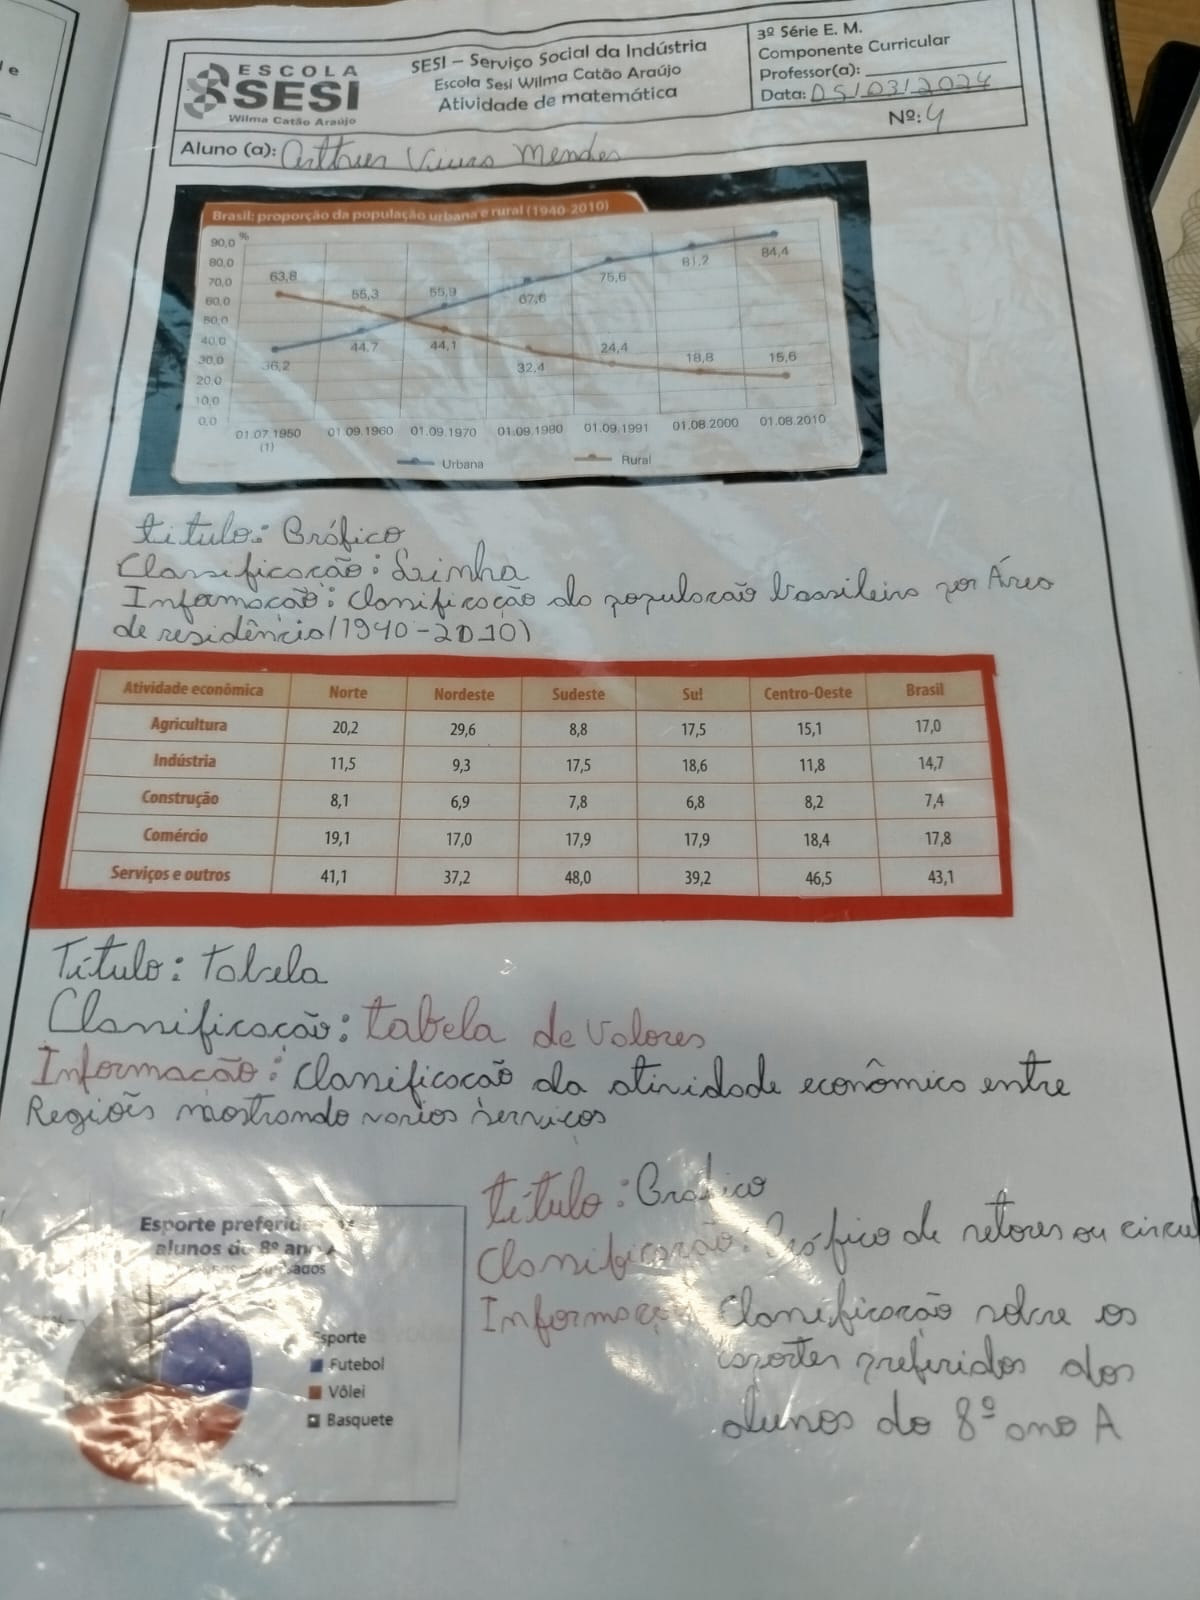 ESCOLA
SESI
Wilma Catão Araújo
SESI – Serviço Social da Indústria
Escola Sesi Wilma Catão Araújo
Atividade de matemática
3º Série E. M.
Componente Curricular
Professor(a):
Data: 05/03/2024
Nº: 4
Aluno (a): Arthur Mendes
Brasil: proporção da população urbana e rural (1940-2010)
%
90,0
80,0
70,0
60,0
50,0
40,0
30,0
20,0
10,0
0,0
63,8 55,3 55,9 67,6 75,6 81,2 84,4
36,2 44,7 44,1 32,4 24,4 18,8 15,6
01.07.1950 01.09.1960 01.09.1970 01.09.1980 01.09.1991 01.08.2000 01.08.2010
(1)
Urbana Rural
título: Gráfico
Classificação: Linha
Informação: Classificação da população brasileira por Área
de residência (1940-2010)
Atividade econômica Norte Nordeste Sudeste Sul Centro-Oeste Brasil
Agricultura 20,2 29,6 8,8 17,5 15,1 17,0
Indústria 11,5 9,3 17,5 18,6 11,8 14,7
Construção 8,1 6,9 7,8 6,8 8,2 7,4
Comércio 19,1 17,0 17,9 17,9 18,4 17,8
Serviços e outros 41,1 37,2 48,0 39,2 46,5 43,1
Título: Tabela
Classificação: tabela de Valores
Informação: Classificação da atividade econômica entre
Regiões mostrando varios serviços
título: Gráfico
Classificação: Gráfico de setores ou circul
Informação Classificação sobre os
esportes preferidos dos
alunos do 8º ano A
Esporte
alunos do 8º ano
Esporte
Futebol
Vôlei
Basquete